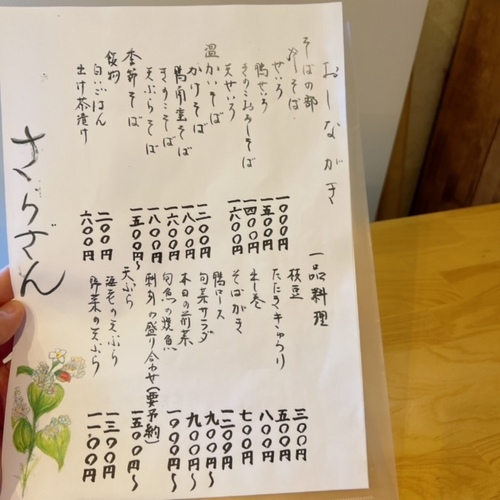 おしながき
そばの部
冷やしそば
せいろ 一〇〇〇円
鴨せいろ 一五〇〇円
きのこおろしそば 一四〇〇円
天せいろ 一六〇〇円
温かいそば
かけそば 一一〇〇円
鴨南蛮そば 一八〇〇円
きのこそば 一六〇〇円
天ぷらそば 一八〇〇円
季節そば 一五〇〇円〜
飯物
白いごはん 二〇〇円
出汁茶漬け 六〇〇円
一品料理
枝豆 三〇〇円
たたききゅうり 五〇〇円
出し巻 八〇〇円
そばがき 七〇〇円
鴨ロース 一二〇〇円
旬菜サラダ 九〇〇円〜
本日の前菜 九〇〇円〜
旬魚の焼魚 一〇〇〇円〜
刺身の盛り合わせ(要予約) 一五〇〇円〜
天ぷら
海老の天ぷら 一三〇〇円
野菜の天ぷら 一一〇〇円
さらざん